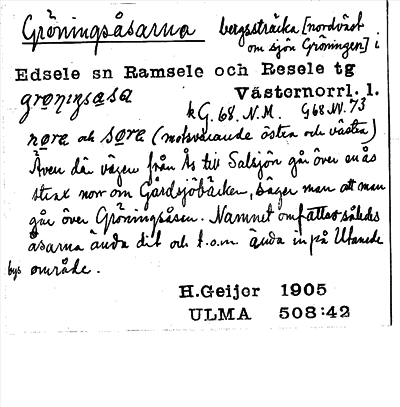 Gröningsåsarna bergssträcka [nordväst
om sjön Gröningen] i
Edsele sn Ramsele och Resele tg
grøningsasa Västernorrl. l.
kG. 68. N.M. G68 NV. 73
nøra och søra (motsvarande östra och västra)
Även där vägen från Ås till Salsjön går över en ås
strax norr om Gårdsjöbäcken, säger man att man
går över Gröningsåsen. Namnet omfattar således
åsarna ända dit och t.o.m. ända in på Utanede
bys område.
H.Geijer 1905
ULMA 508:42